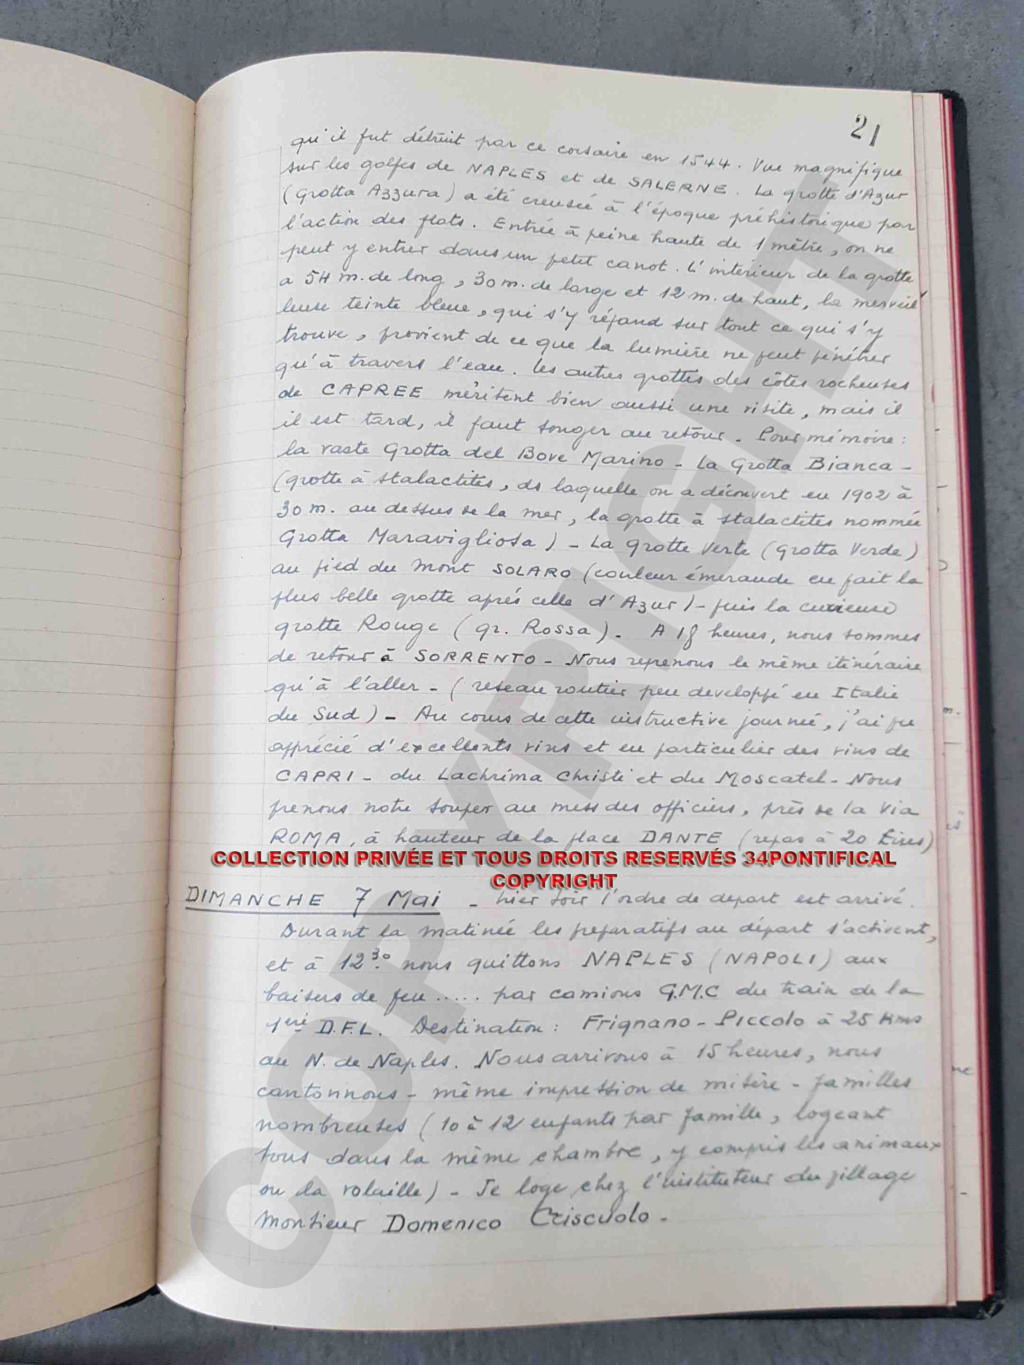 21
qu'il fut détruit par ce corsaire en 1544. Vue magnifique
sur les golfes de NAPLES et de SALERNE. La grotte d'Azur
(Grotta Azzura) a été creusée à l'époque préhistorique par
l'action des flots. Entrée à peine haute de 1 mètre, on ne
peut y entrer dans un petit canot. L'intérieur de la grotte
a 54 m. de long, 30 m. de large et 12 m. de haut, la merveil
leuse teinte bleue, qui s'y répand sur tout ce qui s'y
trouve, provient de ce que la lumière ne peut pénétrer
qu'à travers l'eau. Les autres grottes des côtes rocheuses
de CAPREE méritent bien aussi une visite, mais il
il est tard, il faut songer au retour. Pour mémoire :
la vaste Grotta del Bove Marino - La Grotta Bianca -
(grotte à stalactites, ds laquelle on a découvert en 1902 à
30 m. au dessus de la mer, la grotte à stalactites nommée
Grotta Maravigliosa) - La grotte Verte (Grotta Verde)
au pied du Mont SOLARO (couleur émeraude en fait la
plus belle grotte après celle d'Azur) - puis la curieuse
grotte Rouge (gr. Rossa). A 18 heures, nous sommes
de retour à SORRENTO - Nous reprenons le même itinéraire
qu'à l'aller - (réseau routier peu developpé en Italie
du Sud) - Au cours de cette instructive journée, j'ai pu
apprécié d'excellents vins et en particulier des vins de
CAPRI - du Lachrima Christi et du Moscatel - Nous
prenons notre souper au mess des officiers, près de la Via
ROMA, à hauteur de la place DANTE (repas à 20 Lires)
COLLECTION PRIVÉE ET TOUS DROITS RESERVÉS 34PONTIFICAL
COPYRIGHT
DIMANCHE 7 Mai - hier soir l'ordre de depart est arrivé.
Durant la matinée les préparatifs au départ s'activent,
et à 12 30 nous quittons NAPLES (NAPOLI) aux
baisers de feu ..... par camions G.M.C du train de la
1ère D.F.L. Destination : Frignano-Piccolo à 25 Kms
au N. de Naples. Nous arrivons à 15 heures, nous
cantonnons - même impression de misère - familles
nombreuses (10 à 12 enfants par famille, logeant
tous dans la même chambre, y compris les animaux
ou la volaille) - Je loge chez l'instituteur du village
Monsieur Domenico Criscuolo -
COPYRIGHT